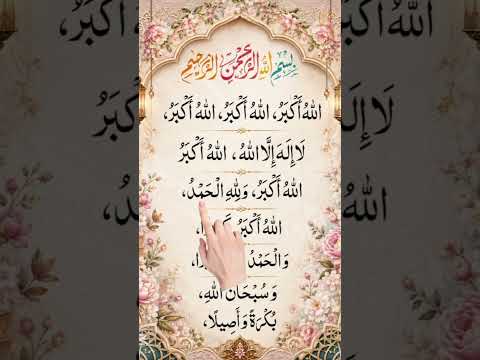 بِسْمِ اللهِ الرَّحْمٰنِ الرَّحِيْمِ
اللهُ أَكْبَرُ، اللهُ أَكْبَرُ، اللهُ أَكْبَرُ،
لَا إِلَهَ إِلَّا اللهُ، اللهُ أَكْبَرُ
اللهُ أَكْبَرُ، وَلِلهِ الْحَمْدُ،
اللهُ أَكْبَرُ
وَالْحَمْدُ
وَسُبْحَانَ اللهِ،
بُكْرَةً وَأَصِيلًا،